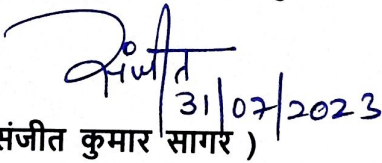 संजीत
31/07/2023
संजीत कुमार सागर )